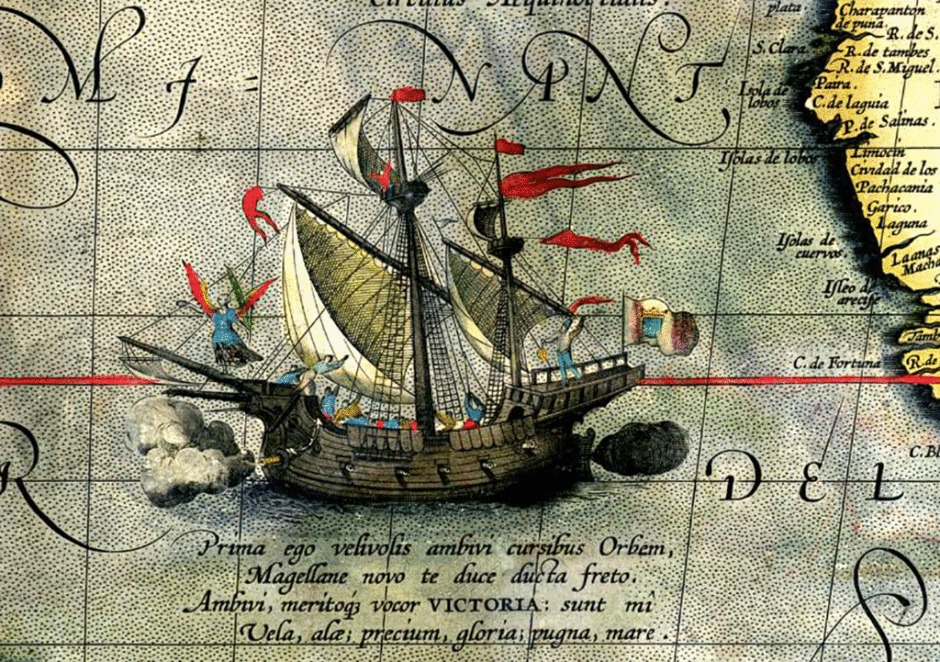 Circulus Aequinoctialis.
plata.
Charapanton
de punã.
R. de S.
S. Clara.
R. de tambes
R. de S. Miguel.
M A = N I N T
Isola de
lobos
Paira.
C. de laguia
P. de Salinas.
Iſolas de lobos
Limocin
Cividad de los
Pachacania
Garico.
Laguna
Iſolas de
cuervos.
Laanas
Mach
Iſleo de
arecife
Tamb
C. de Fortuna
R. de
C. B
R DEL
Prima ego velivolis ambivi cursibus Orbem,
Magellane novo te duce ducta freto.
Ambivi, meritoqȝ vocor VICTORIA: sunt mî
Vela, alæ; precium, gloria; pugna, mare.